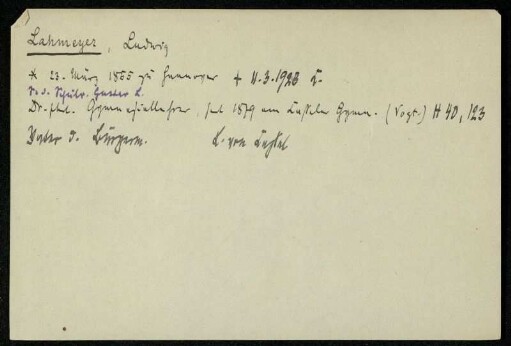 Lahmeyer, Ludwig
* 23. März 1855 zu Hannover + 11.3.1928 K.
S. d. Schulr. Gustav L.
Dr. phil. Gymnasiallehrer, seit 1879 am Kasseler Gymn. (Vogt.) H 40, 123
Vater d. Bürgerm. L. von Kassel